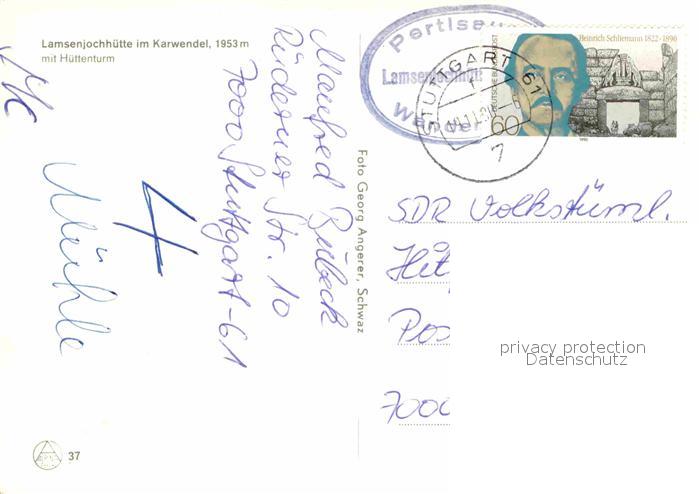 Lamsenjochhütte im Karwendel, 1953 m
mit Hüttenturm
Manfred Bubeck
Rüderner Str. 10
7000 Stuttgart-61
4
Mühle
Foto Georg Angerer, Schwaz
37
Lamsenjochhütt
STUTTGART 61
7
DEUTSCHE BUNDESPOST
Heinrich Schliemann 1822-1890
60
1990
SDR Volkstüml.
Hit
Pos
7000
privacy protection
Datenschutz